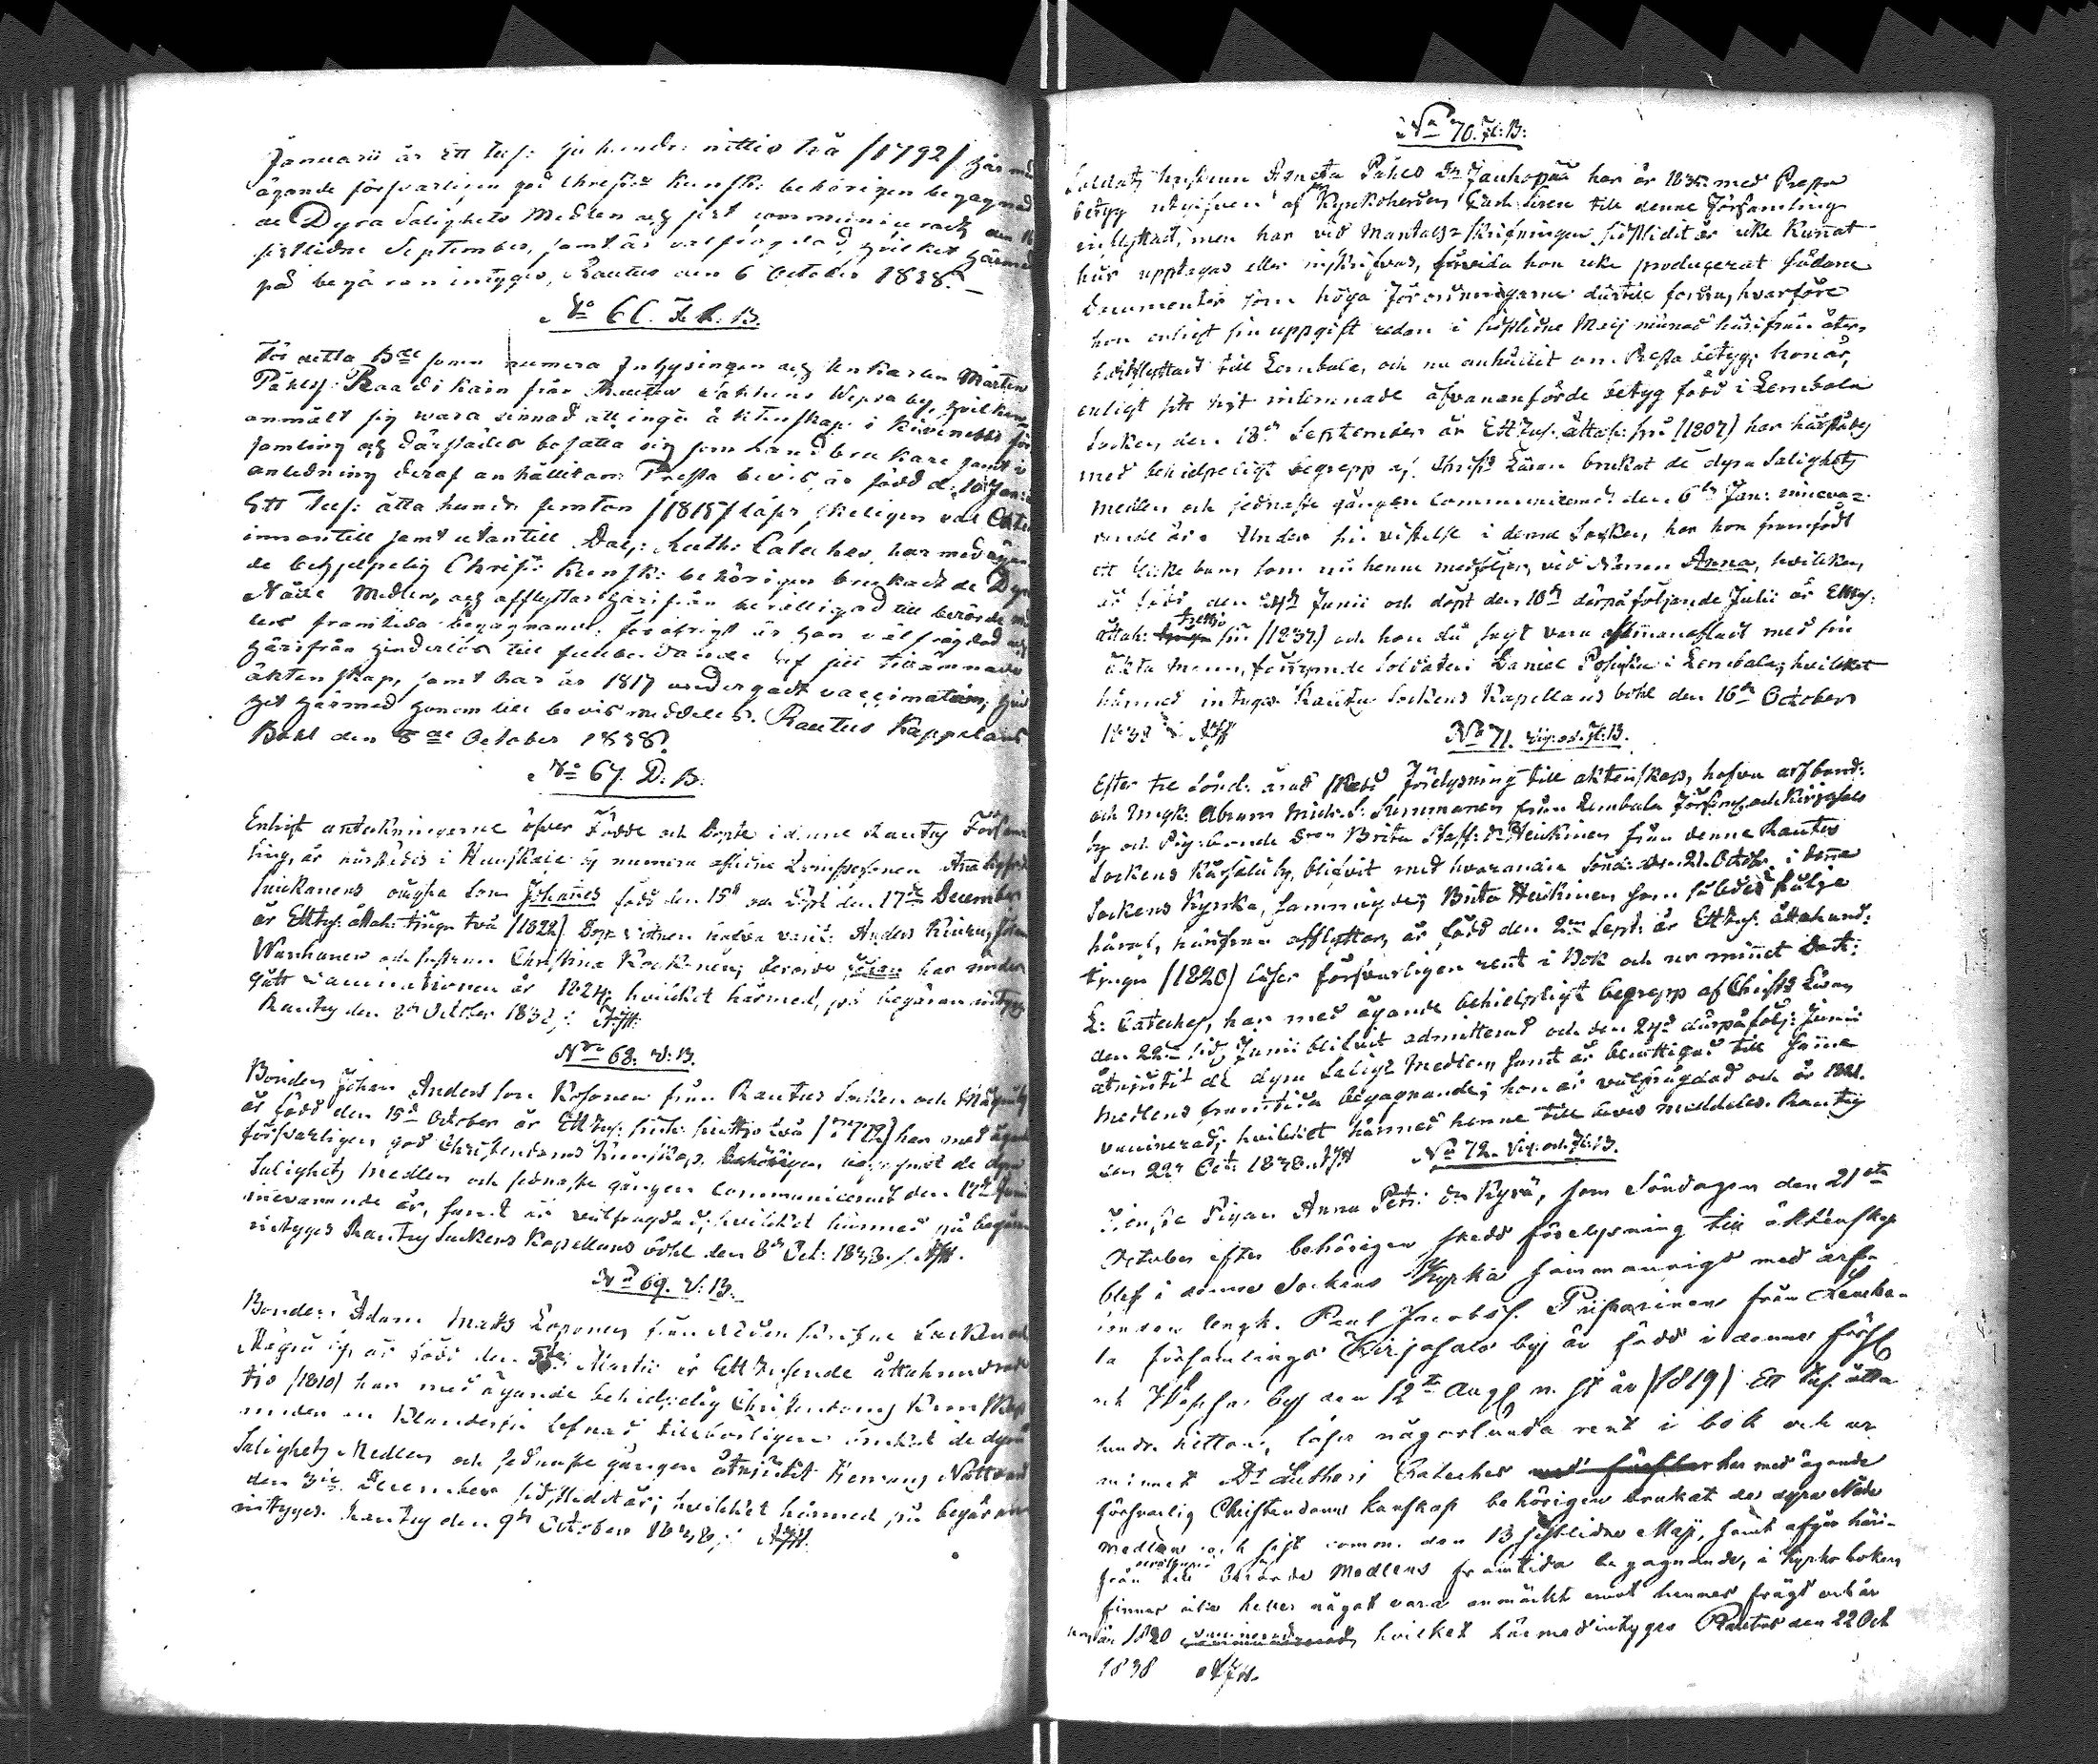 Januarii år Ett tus: sju hundr: nittio två /1792/ har med
ägande försvarligen god Christ: kunsk: behörigen begagnad
de Dyra Salighets Medlen och sist communicerade den
sistledne September, samt är välfrägdad, hvilket härmed
på begäran intygas, Rautus den 6 October 1838.
No 66. Fl. B.
För detta B som numera Inhysingen och Enkarlen Mårten
Påhls: Raadikain från Rautus Sokkens Wepsa by, hvilken
anmält sig wara sinnad att ingå äktenskap i Kivinebb för
samling och därstädes bosätta sig som Landbrukare samt i
anledning deraf anhållit om Presta bevis, är född d. 10 Jan:
Ett Tus: åtta hundr femton /1815/ läser skeligen väl
innantill samt utantill Doc: Luth: Cateches, har med ägan
de behjelpelig Christ: Kunsk: behörigen brukadt de Dyra
Nåde Medlen, och afflyttar härifrån berättigad till berörde med
lens framtida begagnande, för öfrigt är han välfrägdad och
härifrån hinderlös till fullbordande af sitt tillämnade
äktenskap, samt har år 1817 undergådt vaccination, hvil
ket härmed honom till bevis meddeles. Rautus Kappelans
Bohl den 8de October 1838.
No 67. D. B.
Enligt anteckningarne öfver Födde och Döpte i denne Rautus Församl
ling, är härstädes i Huuskala by numera aflidne
oägta Son Johannes född den 15 och döpt den 17de December
år Ett tus: åttah: tjugu två /1822/ Dop vittnen hafva varit: Anders
Wanhanen och hustrun Christina Kockonen; berörde har under
gått Vaccinationen år 1824; hvilket härmed, på begäran intygas
Rautus den 8de October 1838;
No 68. V: B.
Bonden Johan Anderssson Kosonen från Rautus Socken och Mägrä by
är född den 15 October år Ett tus: sjuh: sjuttio två /1772/ har med ägande
försvarligen god Christendoms Kunskap behörigen begagnat de dyra
Salighets Medlen och sednaste gången communicerat den 17 Juni
innevarande år, samt är välfrägdad; hvilket härmed på begäran
intyges Rautus Sockens Kapellans bohl den 8de Oct: 1838.
No 69. V: B.
Bonden Adam Matts Loponen från
Mägrä by, är född den 5te Martii år Ett tusende åttahundrade
tio /1810/ har med ägande behjelpelig Christendoms Kunskap
under en Klanderfri lefnad tillbörligen brukat de dyra
Salighets Medlen och sednaste gången åtnjutit Herrans Nattvard
den 3die December sistledit år; hvilket härmed på begäran
intygas. Rautus den 9de October 1838;
No 70. Fl: B:
Soldats hustrun Agneta Påhls Dr Jauhopää har år 1835 med Presta
betyg utgifven af Kyrkoherden Sirén till denne Församling
inflyttat, men har vid Mantals-skrifningen sistlidit år icke kunnat
här upptagas eller inskrifvas, såvida hon icke producerat sådane
documenter som höga Förordningarne därtill fordra, hvarföre
hon enligt sin uppgift redan i sistlidne Maij månad härifrån åter
bortflyttat till Lembala, och nu anhållit om Presta betyg; hon är,
enligt sitt hit inlemnade ofvananförde betyg född i Lembala
Socken, den 18de September år Ett tus: åttah: sju /1807/ har härstädes
med behjelpeligt begrepp af Christi Läran brukat de dyra Salighets
medlen och sednaste gången communicerat den 6te Jan: inneva-
rande år. Under sin vistelse i denne Socken, har hon framfödt
ett flicke barn som nu henne medföljer, vid Namn Anna, hvilken
är född den Junii och döpt den 10de därpåföljande Julii år Ett tus:
åttah: trettio sju /1837/ och hon då sagt vara sammanaflad med sin
äkta Mann, försvunne Soldaten Daniel i Lembala; hvilket
härmed intygas. Rautus Sockens Kapellans bohl den 16de October
1838
No 71. Vig: o. Fl: B.
Efter tre Sönd: å rad skedd Förelysning till äktenskap, hafva arfbond:
och Yngk: Abram Mich: S: Summanen från Lembala Församl: och Kirjasalo
by och Pig: bonde Dren Brita Staff: Dr Heukinen från denne Rautus
Sockens by, blifvit med hvarandra Sönd: den 21 Octob: i denna
Sockens Kyrka, sammanvigde; Brita Heukinen som således
härmed, härifrån afflyttar, är född den 2en Sept: år Ett tus: åttahund:
tjugu /1820/ läser försvarligen rent i Bok och ur minnet Doct:
L: Cateches, har med ägande behielpligt begrepp af Christi Läran
den 22en sidl. Junii blifvit admitterad och den 24de därpåfölj: Junii
åtnjutit de dyra Salig: Medlen, samt är berättigad till samma
Medlens framtida begagnande; hon är välfrägdad och år 1821
vaccinerad; hvilket härmed henne till bevis meddeles. Rautus
den 22de Oct: 1838.
No 72. Vig: och Fl: B.
Pigan Anna Petr: Dr Kyrä, som Söndagen den 21sta
October efter behörigen skedd förelysning till äktenskap
blef i denne Sockens Kyrka sammanvigd med arfb
sonen Yngk. Paul Jacobss. Pusarinen från Lemba-
la församlings Kirjasalo by är född i denne förs:
och Wepsa by den 12te Aug. n. st år /1819/ Ett tus. åtta
hundr nitton, läser någorlunda rent i bok och ur
minnet Dr Luthers Cateches har med ägande
försvarlig Christendoms kunskap behörigen brukat de dyra Nåde
medlen och sist comm. den 13 sistlidne Maji, samt afgår häri-
från berättigad till berörde Medlens framtida begagnande, i Kyrko boken
finnes icke heller något vara anmärkt emot hennes frägd och är
år 1820 vaccinerad, hvilket härmed intygas Rautus den 22 Oct
1838